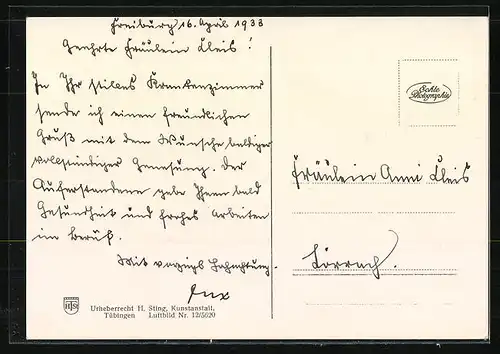 Freiburg 16. April 1933
Geehrte Fräulein Kleis!
In Ihr stilles Krankenzimmer
sende ich einen freundlichen
Gruß mit dem Wunsche baldiger
vollständiger Genesung. Der
Auferstandene gebe Ihnen bald
Gesundheit und frohes Arbeiten
im Beruf.
Mit vorzügl. Hochachtung.
Echte
Photographie
Fräulein Anni Kleis
Lörrach.
HS
Urheberrecht H. Sting, Kunstanstalt,
Tübingen Luftbild Nr. 12/5620